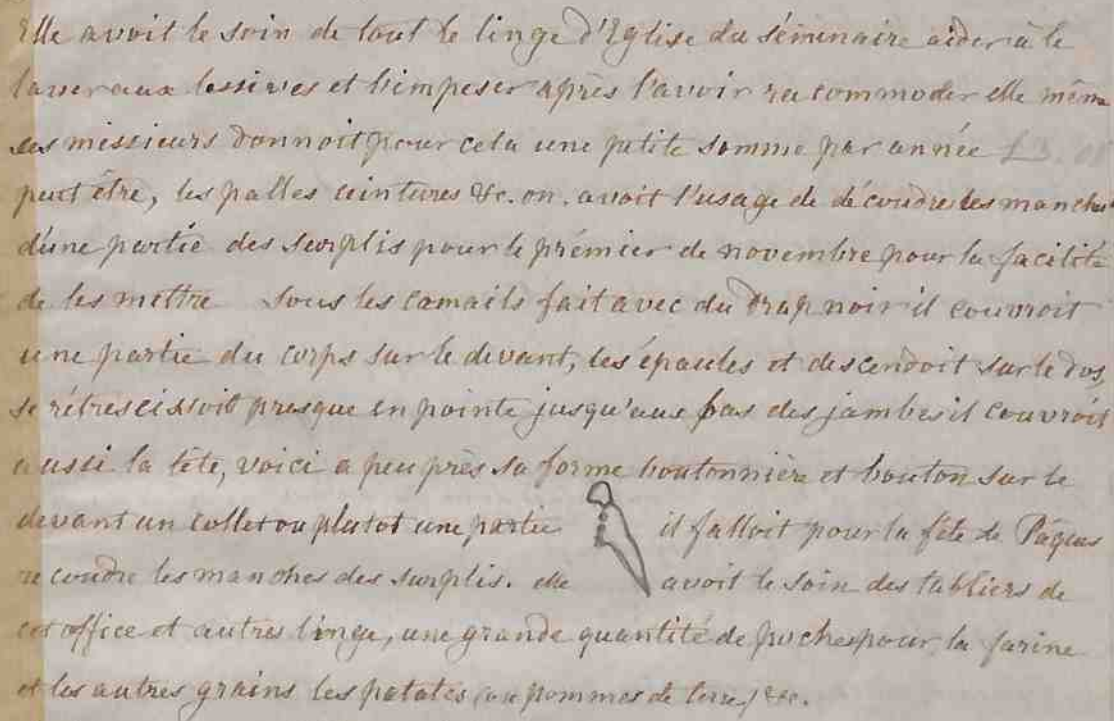 Elle avoit le soin de tout le linge d'Eglise du séminaire aider à le
laver aux lessives et l'impeser après l'avoir racommoder elle même
ces messieurs donnoit pour cela une petite somme par année
peut être, les palles ceintures &c. on avoit l'usage de découdre les manches
d'une partie des surplis pour le prémier de novembre pour la facilité
de les mettre sous les camails fait avec du Drap noir il couvroit
une partie du corps sur le devant, les épaules et descendoit sur le dos,
se rétrescissoit presque en pointe jusqu'aux bas des jambes il couvroit
aussi la tête, voici a peu près sa forme boutonnière et bouton sur le
devant un collet ou plutot une partie il falloit pour la fête de Pâques
recoudre les manches des surplis. elle avoit le soin des tabliers de
cet office et autres linge, une grande quantité de poches pour la farine
et les autres grains les patates (ou pommes de terre) &c.